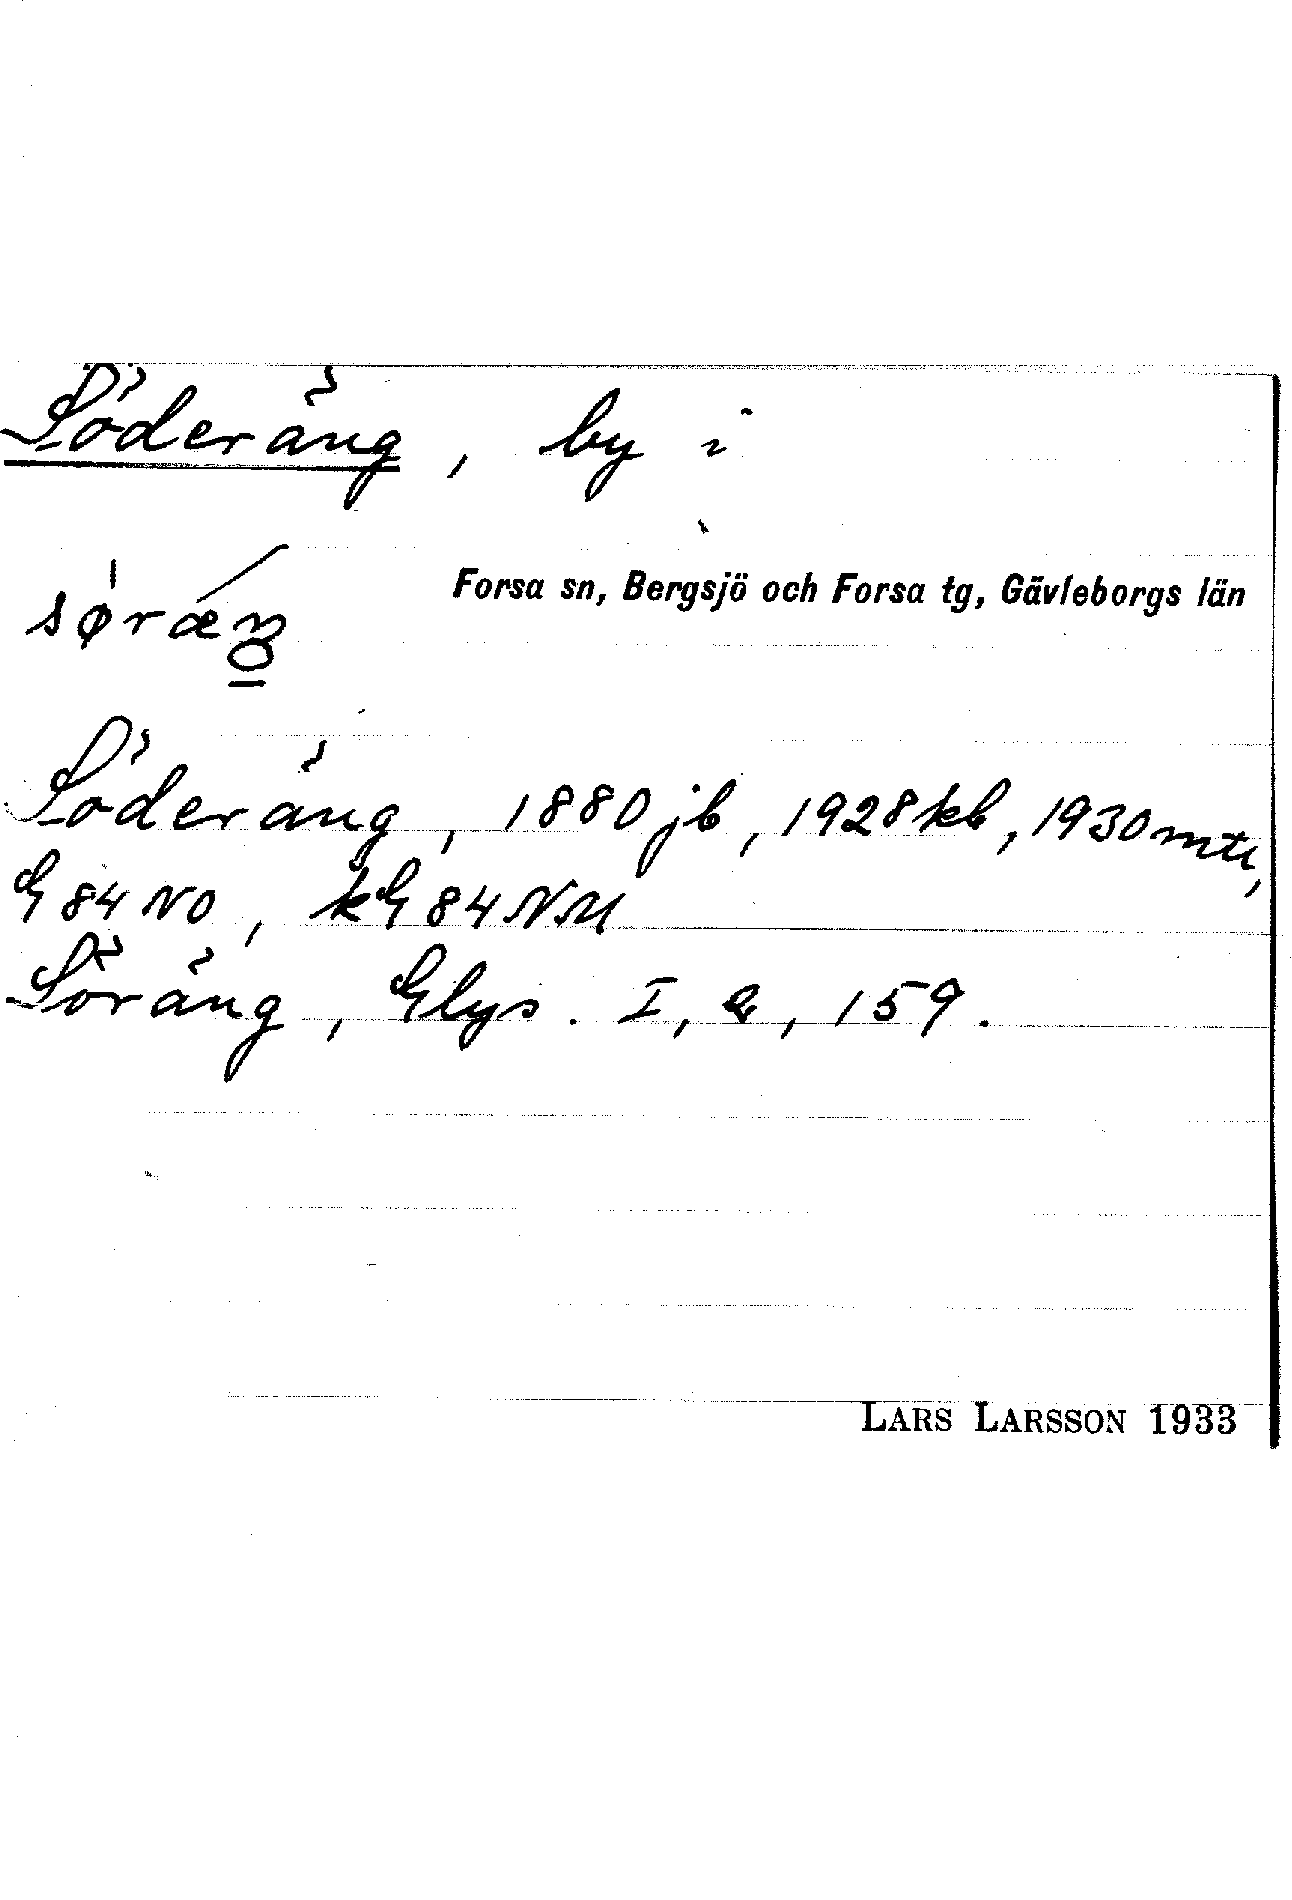 Söderäng, by i
Forsa sn, Bergsjö och Forsa tg, Gävleborgs län
Söderäng, 1880 jb, 1928 kb, 1930 mtl,
G 84 NO, kG 84 NM
Söräng, Glys. I, 2, 159.
LARS LARSSON 1933